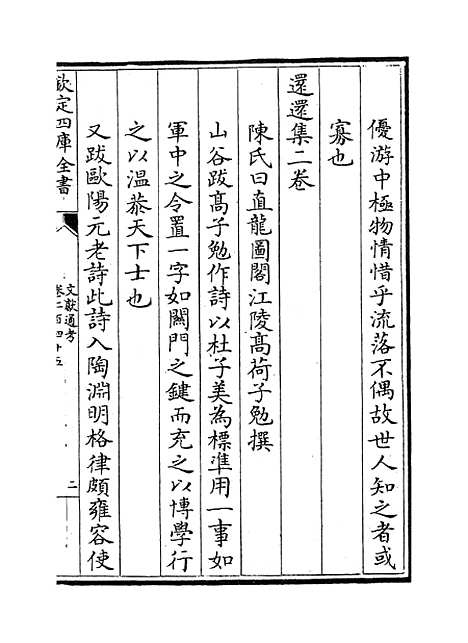 優游中極物情惜乎流落不偶故世人知之者或
寡也
還還集二卷
陳氏曰直龍圖閣江陵高荷子勉撰
山谷跋高子勉作詩以杜子美為標準用一事如
軍中之令置一字如關門之鍵而充之以博學行
之以温恭天下士也
又跋歐陽元老詩此詩入陶淵明格律頗雍容使
欽定四庫全書
文獻通考
卷二百四十五
二